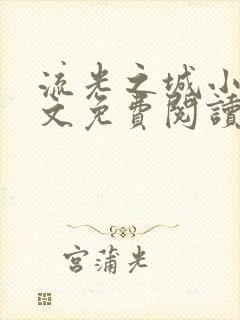 流光之城小
文免費閱讀
宮蒲光